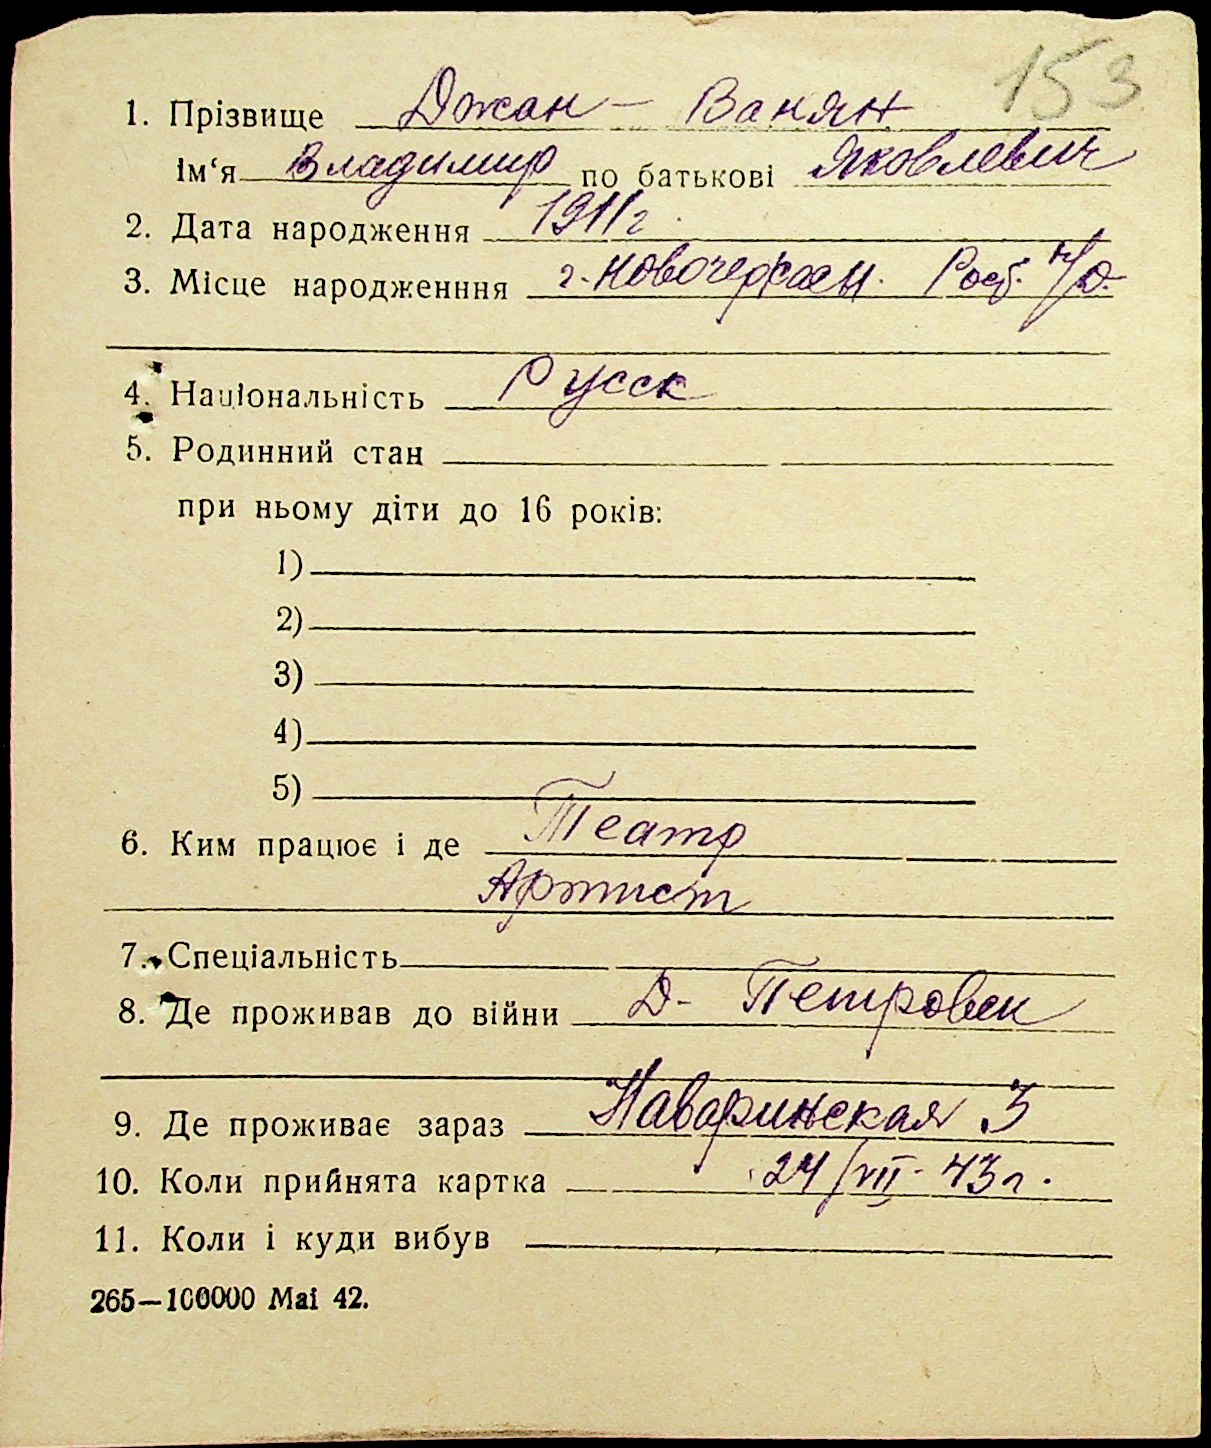 153
1. Прізвище Джан – Ванян
Ім‘я Владимир по батькові Яковлевич
2. Дата народження 1911 г.
3. Місце народженння г. Новочеркасск. Рост. н/Д.
4. Національність Русск
5. Родинний стан
при ньому діти до 16 років:
1)
2)
3)
4)
5)
6. Ким працює і де Театр
Артист
7. Спеціальність
8. Де проживав до війни Д- Петровск
9. Де проживає зараз Наваринская 3
10. Коли прийнята картка 24/VII- 43 г.
11. Коли і куди вибув
265—100000 Mai 42.